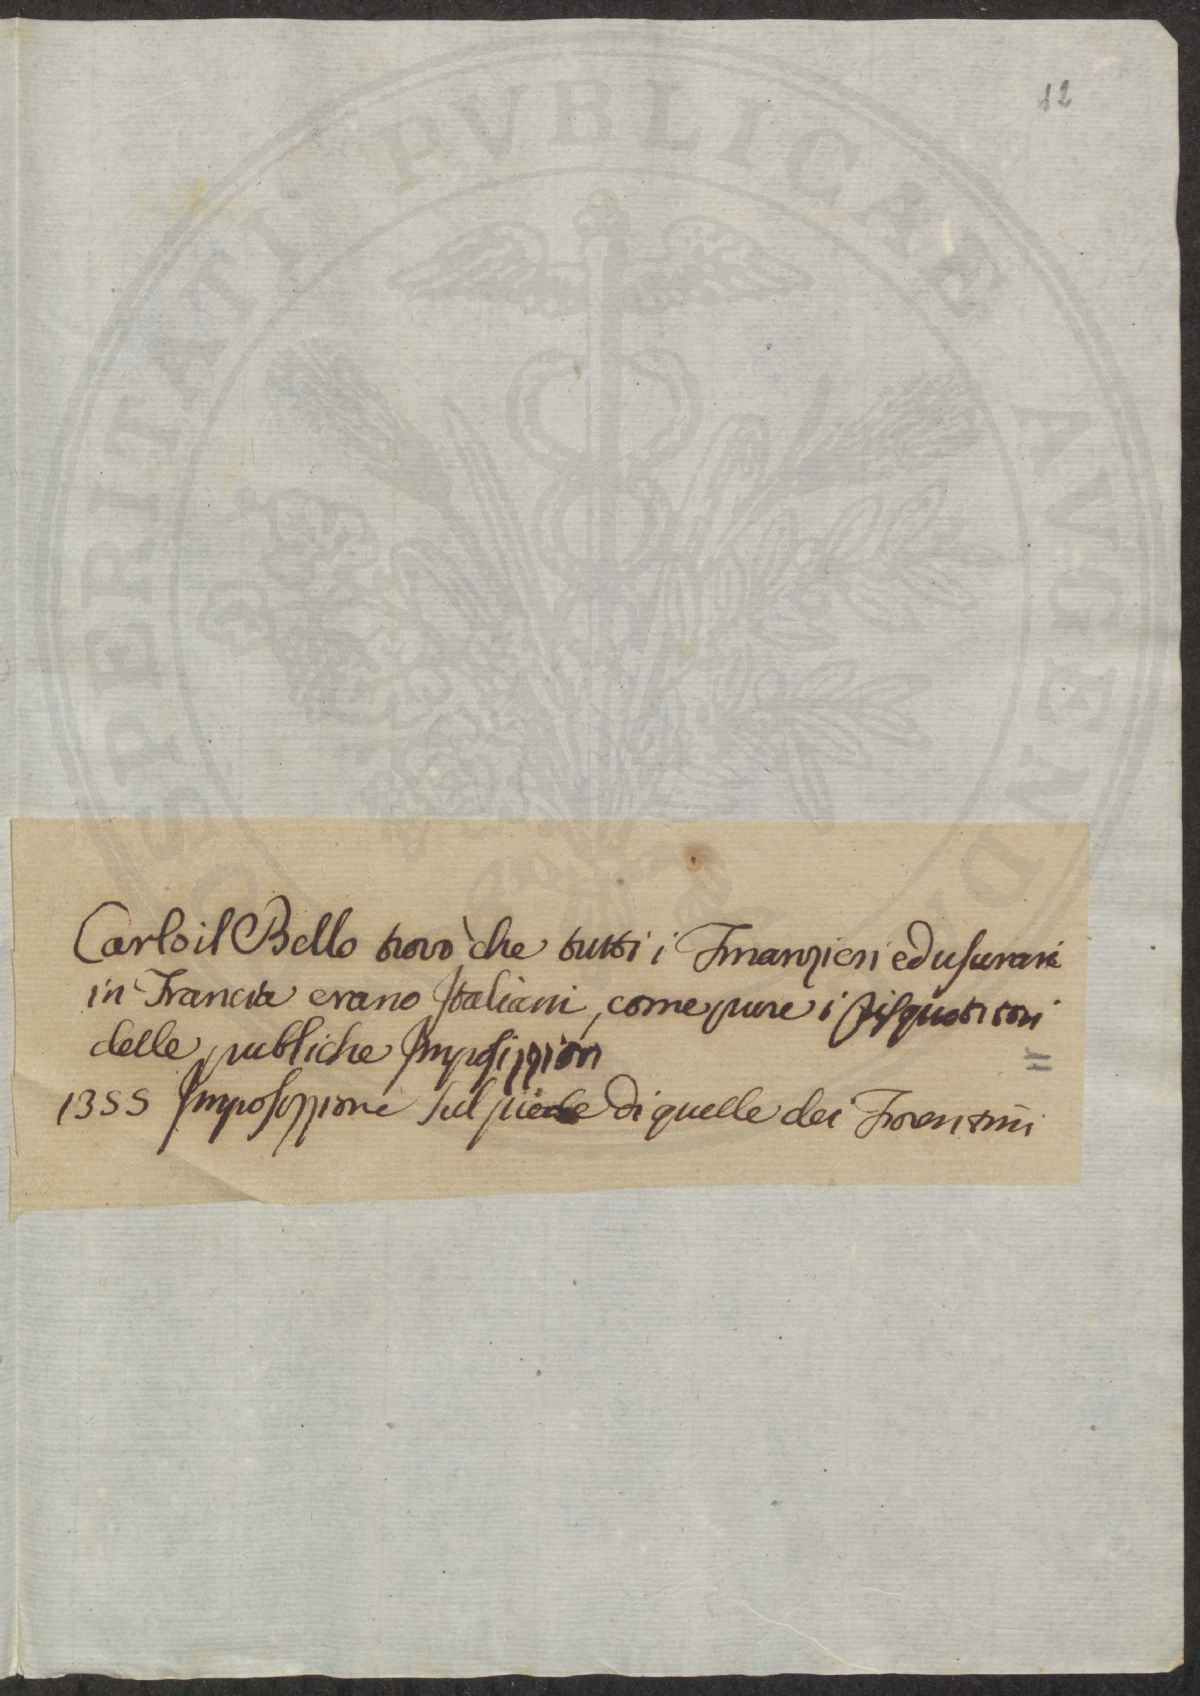 12
Carlo il Bello trovò che tutti i Finanzieri ed usurari
in Francia erano Italiani, come pure i Risquotitori
delle publiche Imposizzioni
11
1355 Imposizzione sul piede di quelle dei Fiorentini
PROSPERITATI PVBLICAE AVGENDAE